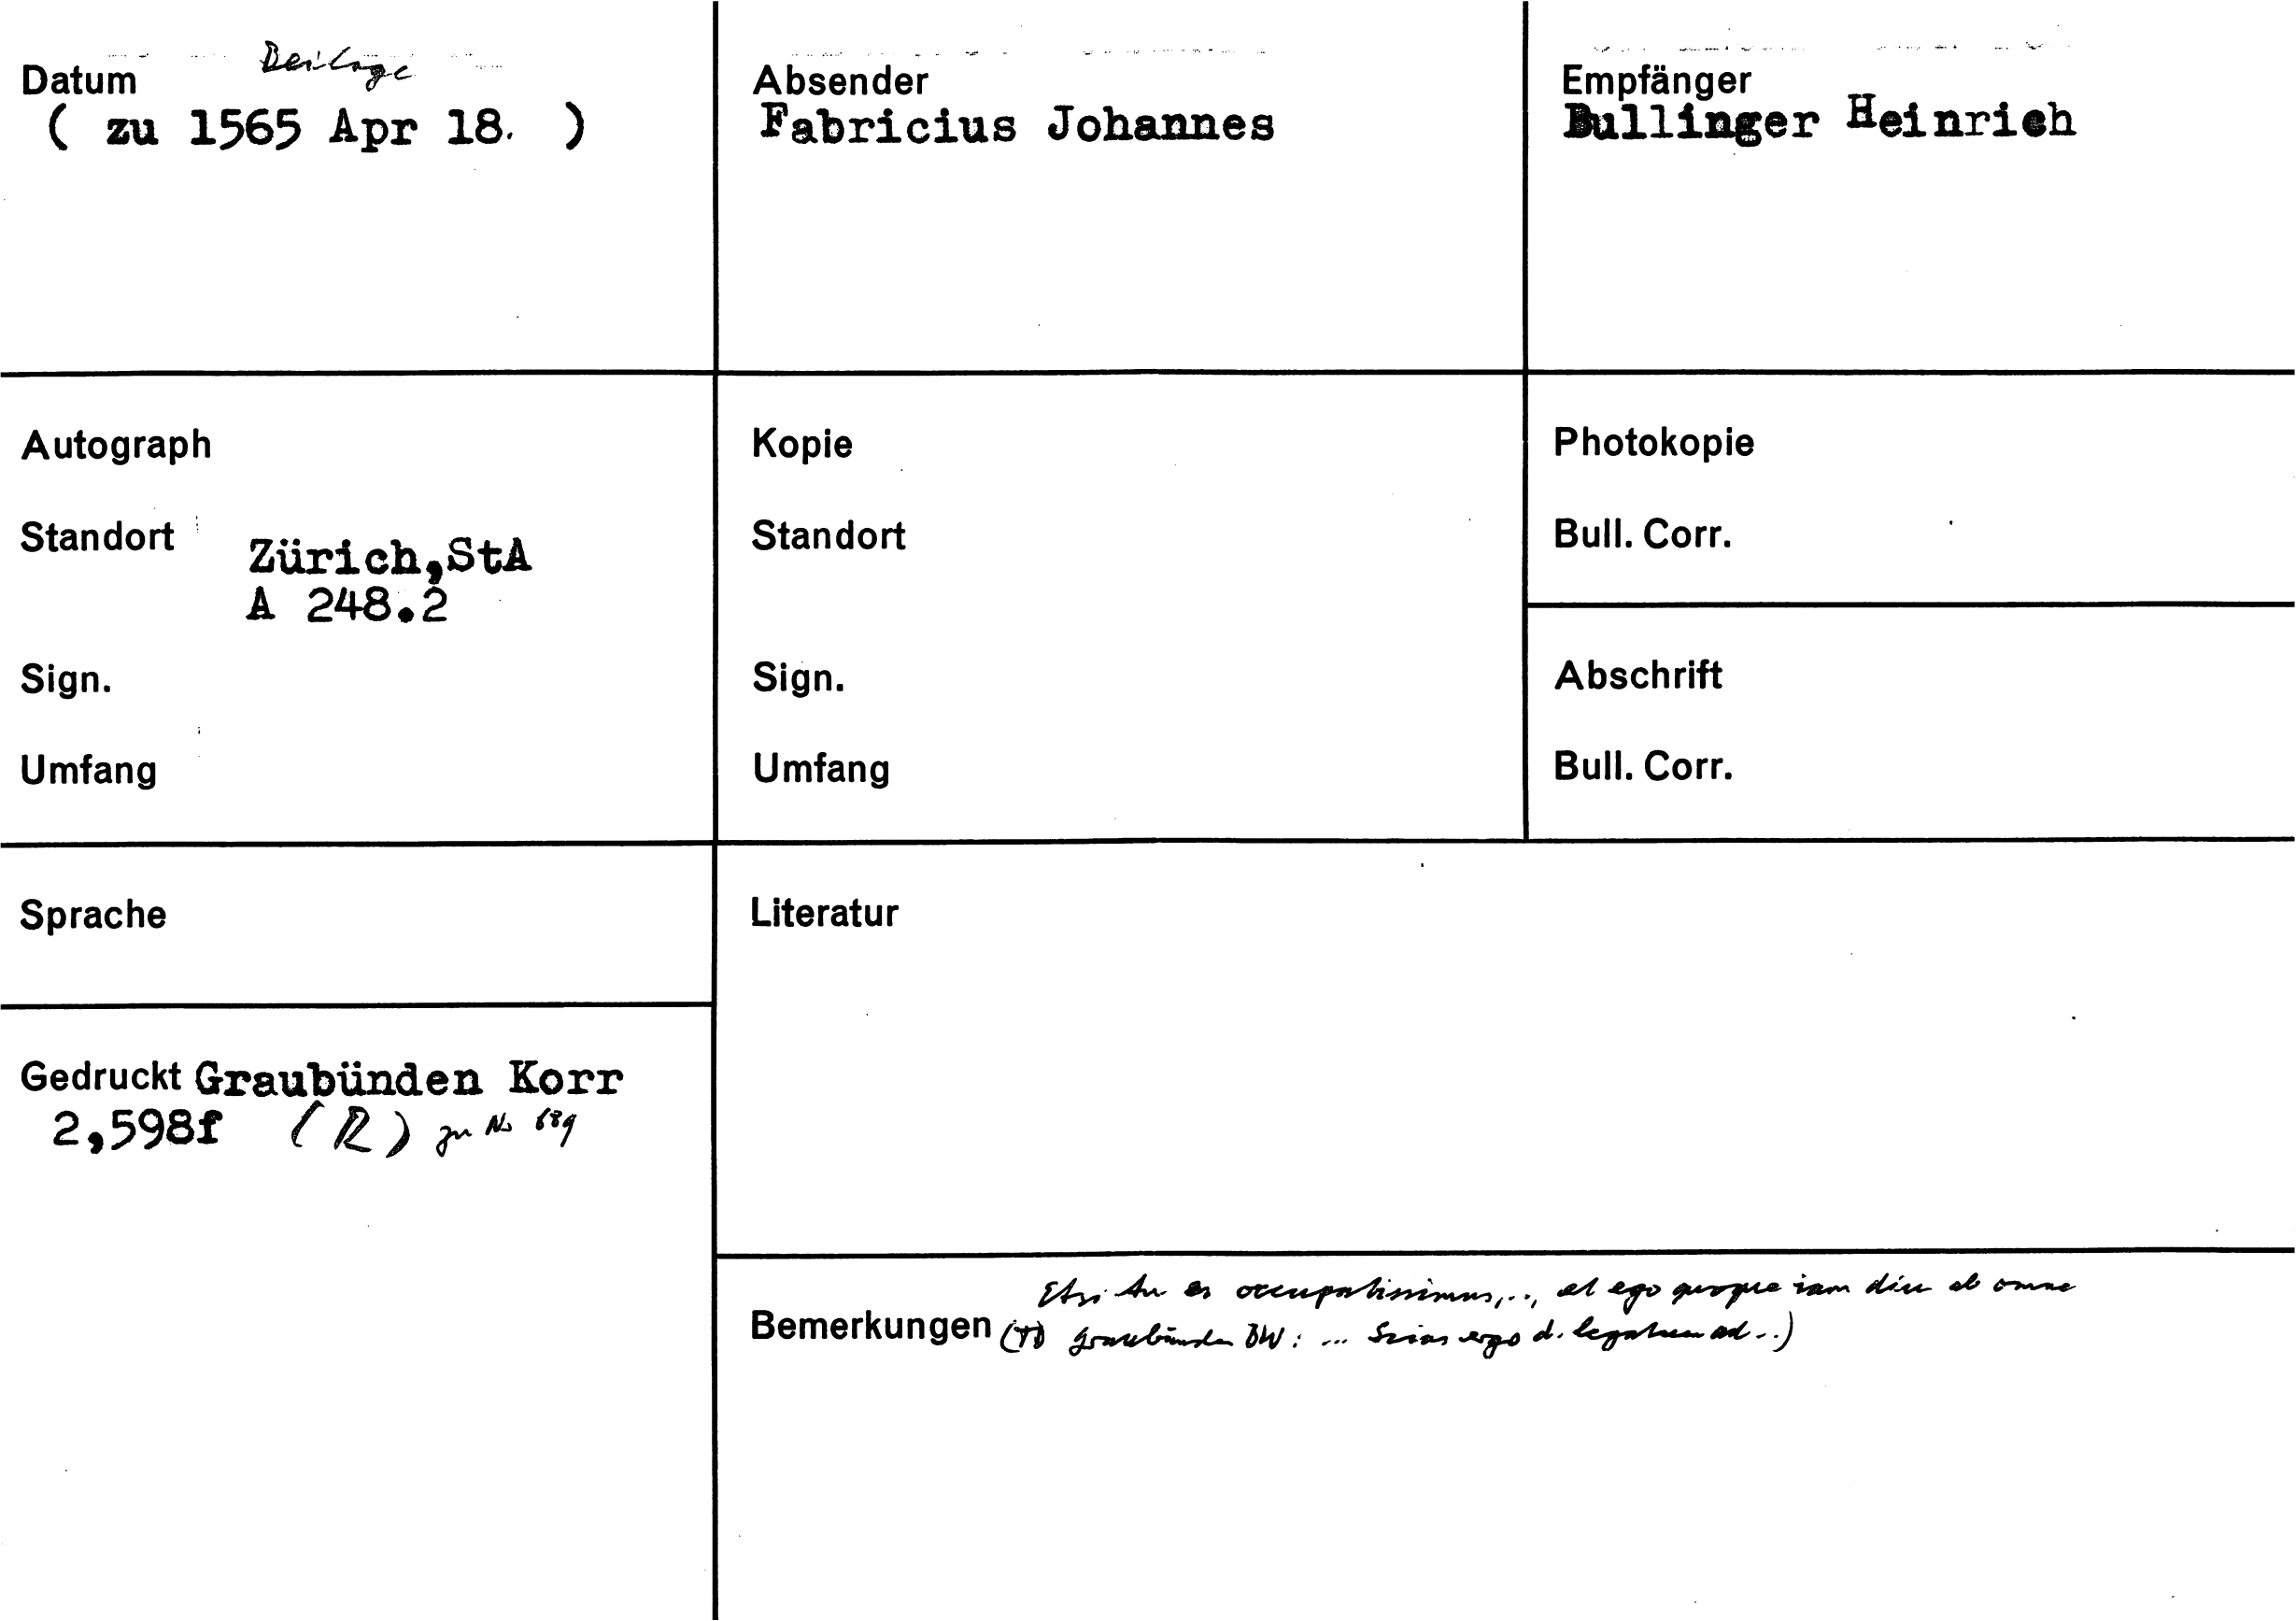 Datum Beilage
( zu 1565 Apr 18. )
Absender
Fabricius Johannes
Empfänger
Bullinger Heinrich
Autograph
Standort Zürich,StA
A 248.2
Sign.
Umfang
Kopie
Standort
Sign.
Umfang
Photokopie
Bull. Corr.
Abschrift
Bull. Corr.
Sprache
Gedruckt Graubünden Korr
2,598f (R) zu No 689
Literatur
Etsi tu es occupatissimus,.., et ego quoque iam diu ab omne
Bemerkungen ( Graubünden BW: ... ergo d. legatum ad ..)